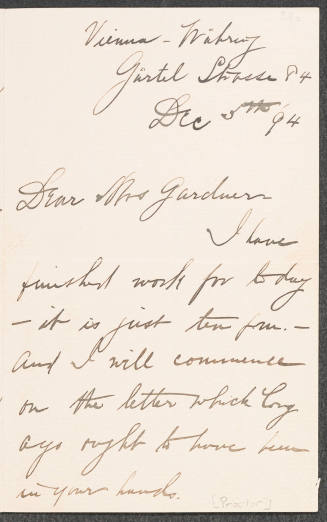 Vienna - Währing
Gürtel Strasse 84
Dec 5th 94
Dear Mrs Gardner
I have
finished work for today
- it is just ten p.m. -
and I will commence
on the letter which long
ago ought to have been
in your hands.
[Proctor]